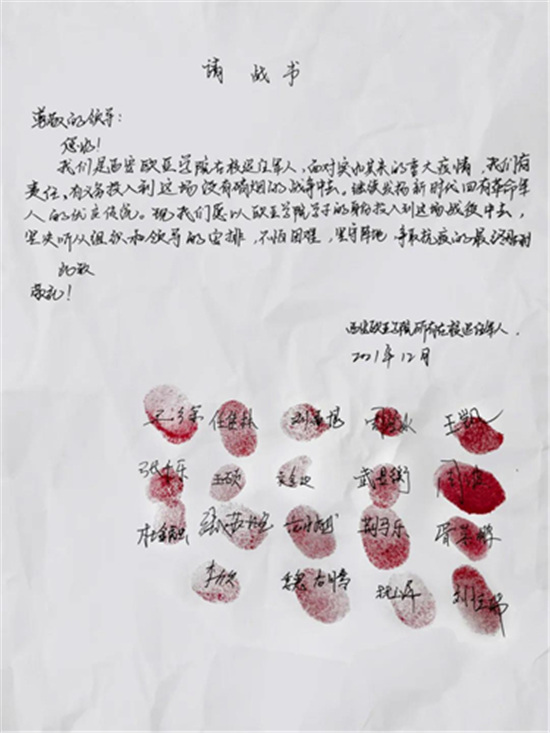 请战书
尊敬的领导:
您好!
我们是西安欧亚学院在校退役军人,面对突如其来的重大疫情,我们有
责任,有义务投入到这场没有硝烟的战争中去。继续发扬新时代四有革命军
人的优良传统。现我们愿以欧亚学院学子的身份投入到这场战役中去,
坚决听从组织和领导的安排,不怕困难,坚守阵地 争取抗疫的最终胜利
此致
敬礼!
西安欧亚学院所有在校退役军人.
2021年12月
任
刘
王凯
张乐
王欣
武
杜
荆乐
李
魏
刘